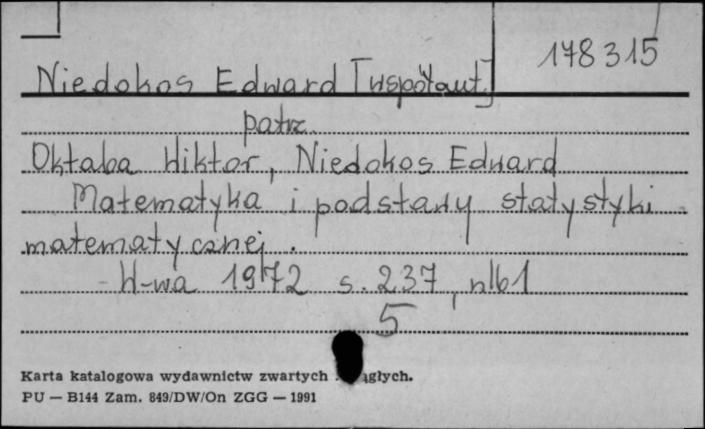 178315
Niedokos Edward [współaut.]
patrz.
Oktaba Wiktor, Niedokos Edward
Matematyka i podstawy statystyki
matematycznej.
- W-wa 1972 s. 237, nlb 1
5
Karta katalogowa wydawnictw zwartych
PU — B144 Zam. 849/DW/On ZGG — 1991